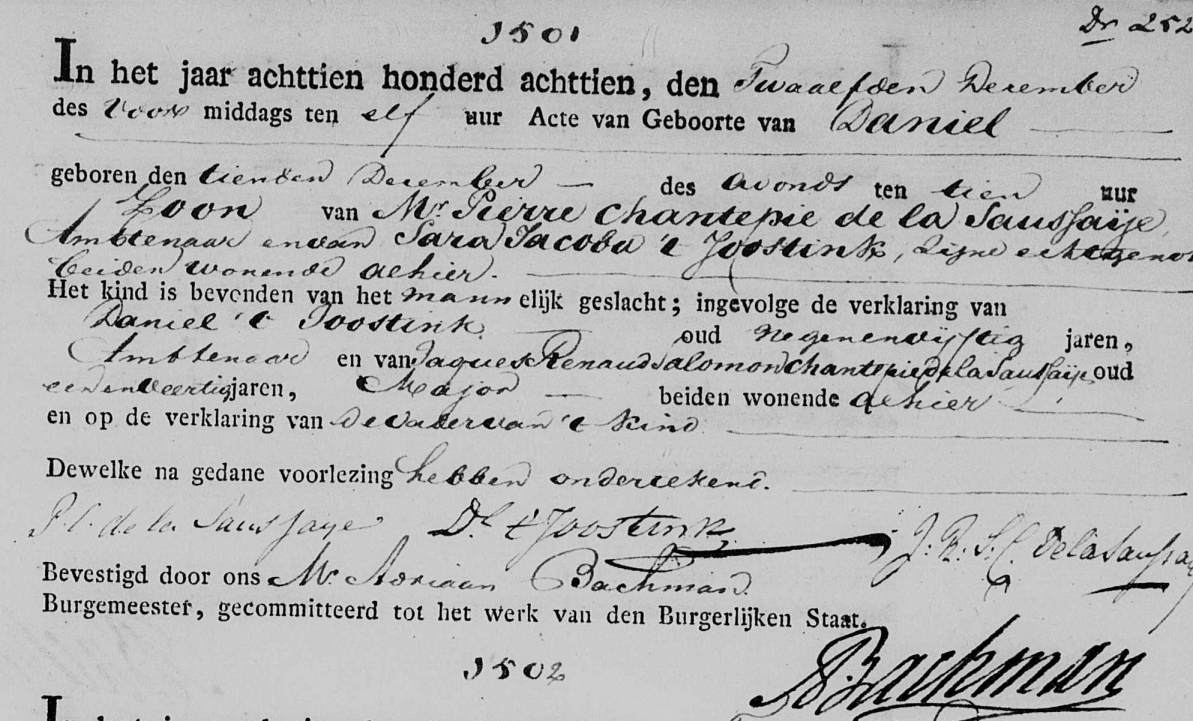 1501
Dr 252
In het jaar achttien honderd achttien, den Twaalfden December
des Voor middags ten elf uur Acte van Geboorte van Daniel
geboren den tienden December des Avonds ten tien uur
Zoon van Mr. Pierre Chantepie de la Saussaÿe,
Ambtenaar en van Sara Jacoba 't Joostink, zijne echtgenot
beiden wonende alhier.
Het kind is bevonden van het mann elijk geslacht; ingevolge de verklaring van
Daniel 't Joostink oud Negenenvijftig jaren,
Ambtenaar en van Jaques Renaud Salomon Chantepie de la Saussaije oud
eenenveertig jaren, Major beiden wonende alhier
en op de verklaring van de vader van 't kind
Dewelke na gedane voorlezing hebben ondertekend.
P. C. de la Saussaye Dl. 't Joostink J. R. S. C. de la Saussay
Bevestigd door ons Mr. Adriaan Bachman
Burgemeester, gecommitteerd tot het werk van den Burgerlijken Staat.
A Bachman
1502